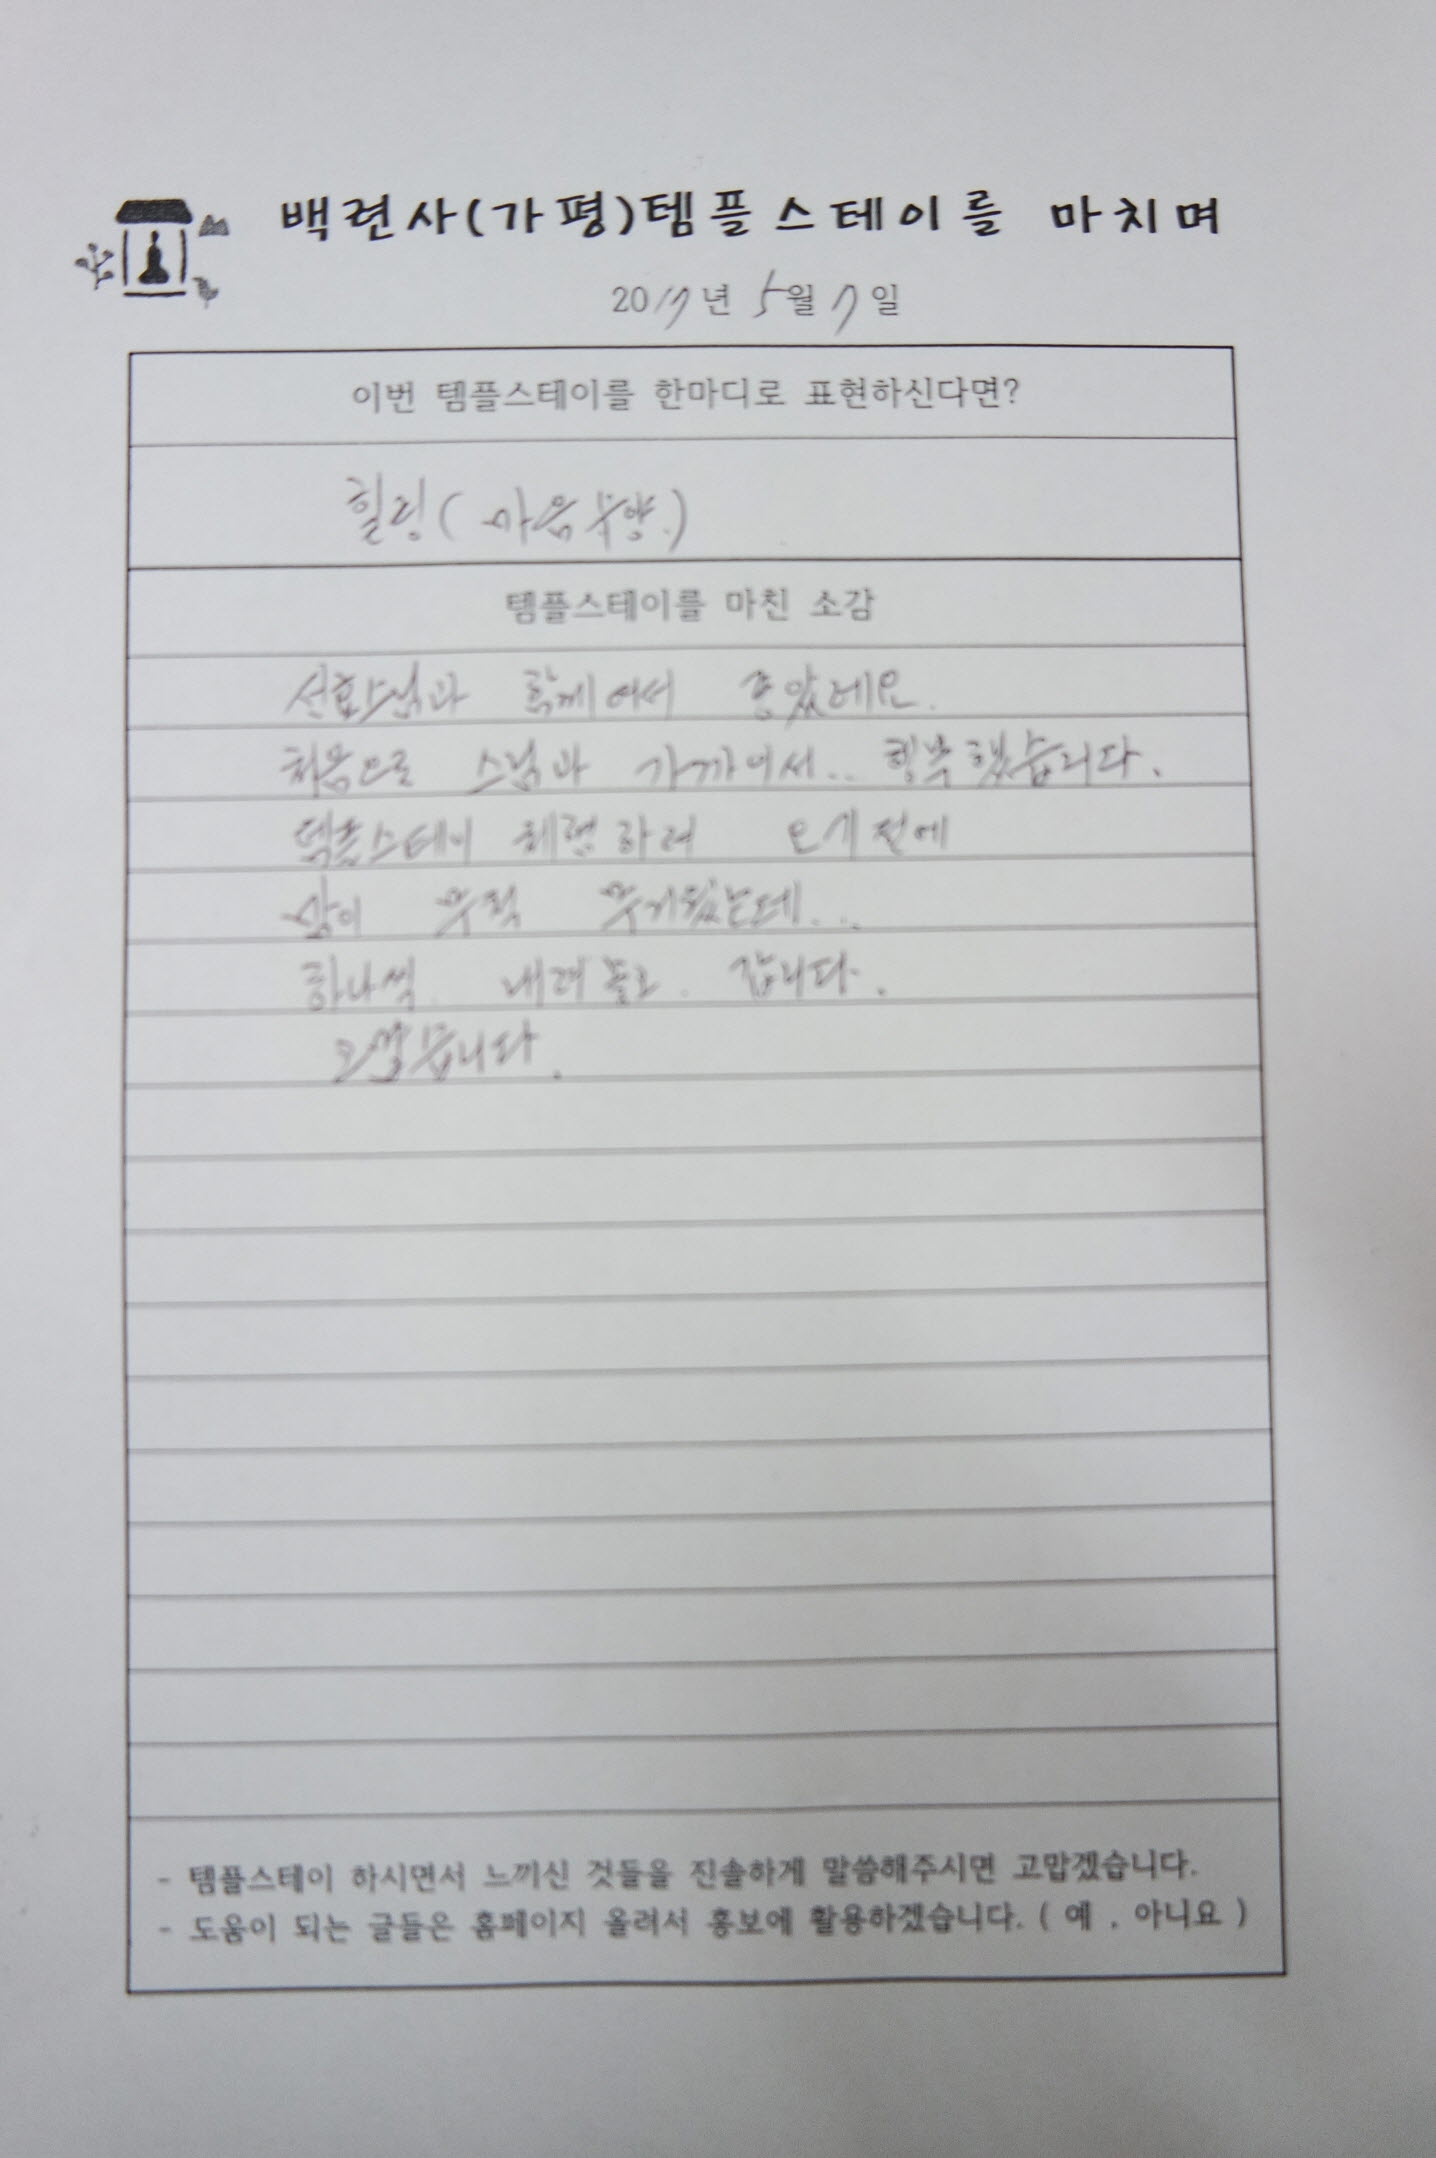 백련사(가평)템플스테이를 마치며
2017년 5월 7일
이번 템플스테이를 한마디로 표현하신다면?
힐링( 마음수양.)
템플스테이를 마친 소감
함께여서 좋았네요.
처음으로 스님과 가까이서.. 행복했습니다.
템플스테이 체험하러 오기전에
삶이 무척 무거웠는데...
하나씩 내려놓고 갑니다.
고맙습니다.
- 템플스테이 하시면서 느끼신 것들을 진솔하게 말씀해주시면 고맙겠습니다.
- 도움이 되는 글들은 홈페이지 올려서 홍보에 활용하겠습니다. ( 예 , 아니요 )